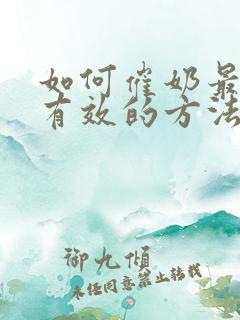 如何催奶最
有效的方法
御九倾
未经同意禁止转载